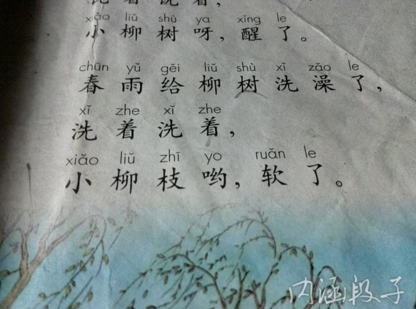 洗着洗着，
xiǎo liǔ shù ya xǐng le
小柳树呀，醒了。
chūn yǔ gěi liǔ shù xǐ zǎo le
春雨给柳树洗澡了，
xǐ zhe xǐ zhe
洗着洗着，
xiǎo liǔ zhī yo ruǎn le
小柳枝哟，软了。
内涵段子